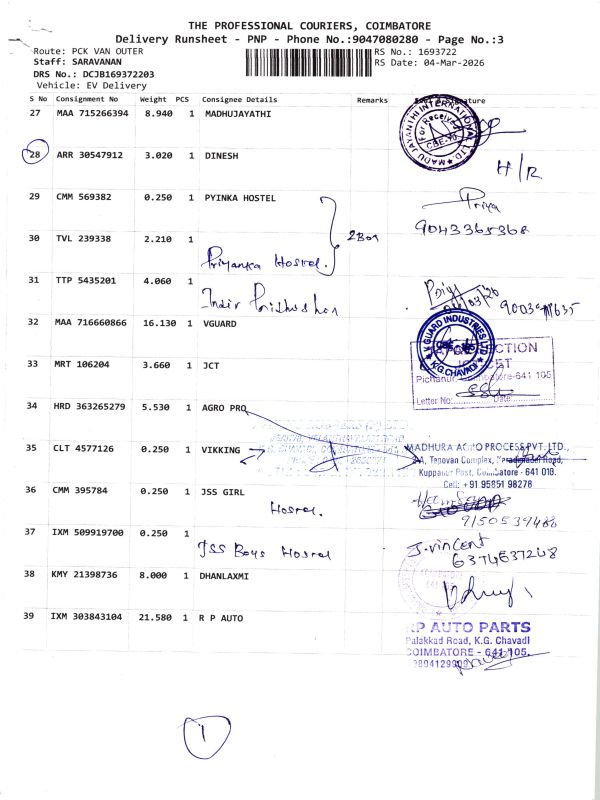 THE PROFESSIONAL COURIERS, COIMBATORE
Delivery Runsheet - PNP - Phone No.:9047080280 - Page No.:3
Route: PCK VAN OUTER
RS No.: 1693722
Staff: SARAVANAN
RS Date: 04-Mar-2026
DRS No.: DCJB169372203
Vehicle: EV Delivery
S No Consignment No Weight PCS Consignee Details Remarks
27 MAA 715266394 8.940 1 MADHUJAYATHI
MADU JAYANTHI INTERNATIONAL LTD
For Received
28 ARR 30547912 3.020 1 DINESH
H/R
29 CMM 569382 0.250 1 PYINKA HOSTEL
Priya
9043365368
30 TVL 239338 2.210 1
2 Box
Priyanka Hostel.
31 TTP 5435201 4.060 1
32 MAA 716660866 16.130 1 VGUARD
V GUARD INDUSTRIES LTD
K.G. CHAVADI
33 MRT 106204 3.660 1 JCT
JCT
Coimbatore-641 105
Letter No: Date:
34 HRD 363265279 5.530 1 AGRO PRO
35 CLT 4577126 0.250 1 VIKKING
MADHURA AGRO PROCESS PVT. LTD.,
Tapovan Complex,
Kuppanur Post, Coimbatore - 641 018.
Cell: +91 95851 98278
36 CMM 395784 0.250 1 JSS GIRL
Hostel.
9150539486
37 IXM 509919700 0.250 1
JSS Boys Hostel
J. vincent
6374637248
38 KMY 21398736 8.000 1 DHANLAXMI
39 IXM 303843104 21.580 1 R P AUTO
RP AUTO PARTS
Palakkad Road, K.G. Chavadi
COIMBATORE - 641 105.
1